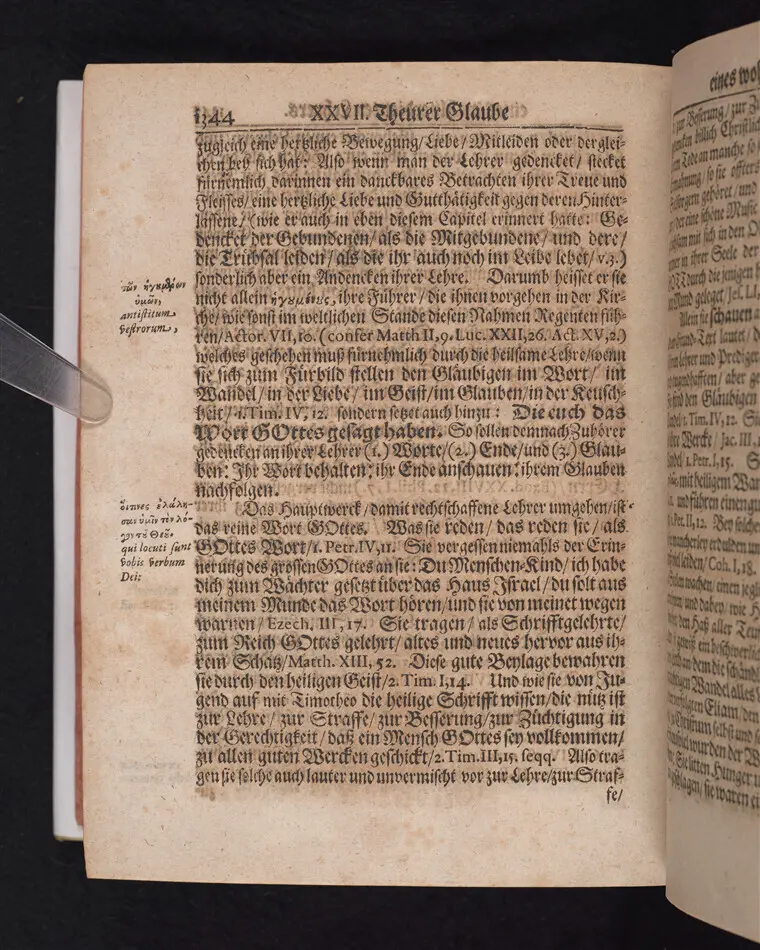 1344 XXVII. Theurer Glaube
zugleich eine hertzliche Bewegung/Liebe/Mitleiden oder dergleichen bey sich hat: Also wenn man der Lehrer gedencket/ stecket
fürnemlich darinnen ein danckbares Betrachten ihrer Treue und
Fleisses/eine hertzliche Liebe und Gutthätigkeit gegen deren Hinter-
lassene/(wie er auch in eben diesem Capitel erinnert hatte: Ge-
dencket der Gebundenen/als die Mitgebundene/und dere/
die Trübsal leiden/als die ihr auch noch im Leibe lebet/v.3.)
sonderlich aber ein Andencken ihrer Lehre. Darumb heisset er sie
nicht allein ἡγουμένους, ihre Führer/die ihnen vorgehen in der Kir-
che/wie sonst im weltlichen Stande diesen Nahmen Regenten füh-
ren/Actor. VII, 10. (confer Matth II, 9. Luc. XXII, 26. Act. XV, 2.)
welches geschehen muß fürnehmlich durch die heilsame Lehre/wenn
sie sich zum Fürbild stellen den Gläubigen im Wort/ im
Wandel/in der Liebe/im Geist/im Glauben/in der Keusch-
heit/1. Tim. IV, 12. sondern setzet auch hinzu: Die euch das
Wort GOttes gesagt haben. So sollen demnach Zuhörer
gedencken an ihrer Lehrer (1.) Worte/(2.) Ende/und (3.) Glau-
ben: Ihr Wort behalten: ihr Ende anschauen: ihrem Glauben
nachfolgen.
Das Hauptwerck/damit rechtschaffene Lehrer umgehen/ist
das reine Wort GOttes. Was sie reden/das reden sie/als
GOttes Wort/1. Petr. IV, 11. Sie vergessen niemahls der Erin-
nerung des grossen GOttes an sie: Du Menschen-Kind/ich habe
dich zum Wächter gesetzt über das Haus Israel/du solt aus
meinem Munde das Wort hören/und sie von meinet wegen
warnen/Ezech. III, 17. Sie tragen/als Schrifftgelehrte/
zum Reich GOttes gelehrt/altes und neues hervor aus ih-
rem Schatz/Matth. XIII, 52. Diese gute Beylage bewahren
sie durch den heiligen Geist/2. Tim. I, 14. Und wie sie von Ju-
gend auf mit Timotheo die heilige Schrifft wissen/die nütz ist
zur Lehre/zur Straffe/zur Besserung/zur Züchtigung in
der Gerechtigkeit/daß ein Mensch GOttes sey vollkommen/
zu allen guten Wercken geschickt/2. Tim. III, 15. seqq. Also tra-
gen sie solche auch lauter und unvermischt vor zur Lehre/zur Straf-
fe/
τῶν ἡγουμένων
ὑμῶν,
antistitum
vestrorum,
οἵτινες ἐλάλη-
σαν ὑμῖν τὸν λό-
γον τοῦ Θεοῦ.
qui locuti sunt
vobis verbum
Dei: